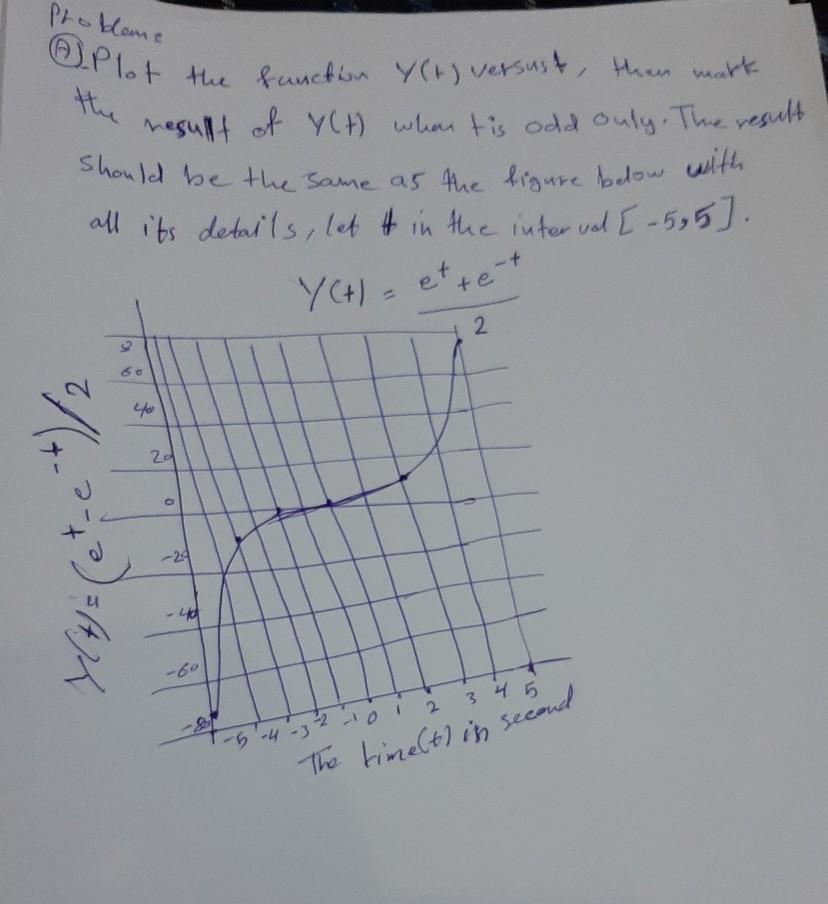 Probleme
(A) Plot the function Y(t) versus t, then mark
the result of Y(t) when t is odd only. The result
should be the same as the figure below with
all its details, let t in the interval [-5,5].
Y(t) = e^t + e^-t
2
60
40
20
0
-20
-40
-60
-80
Y(t) = (e^t - e^-t)/2
-5 -4 -3 -2 -1 0 1 2 3 4 5
The time(t) in second